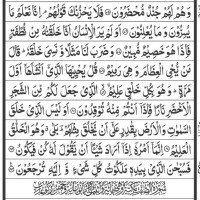 وَهُمْ لَهُمْ جُنْدٌ مُّحْضَرُوْنَ ۝ فَلَا يَحْزُنْكَ قَوْلُهُمْ ۘ اِنَّا نَعْلَمُ مَا
يُسِرُّوْنَ وَمَا يُعْلِنُوْنَ ۝ اَوَلَمْ يَرَ الْاِنْسَانُ اَنَّا خَلَقْنٰهُ مِنْ نُّطْفَةٍ
فَاِذَا هُوَ خَصِيْمٌ مُّبِيْنٌ ۝ وَضَرَبَ لَنَا مَثَلًا وَّنَسِيَ خَلْقَهٗ ؕ قَالَ
مَنْ يُّحْيِ الْعِظَامَ وَهِيَ رَمِيْمٌ ۝ قُلْ يُحْيِيْهَا الَّذِيْۤ اَنْشَاَهَاۤ اَوَّلَ
مَرَّةٍ ؕ وَهُوَ بِكُلِّ خَلْقٍ عَلِيْمٌ ۝ الَّذِيْ جَعَلَ لَكُمْ مِّنَ الشَّجَرِ
الْاَخْضَرِ نَارًا فَاِذَاۤ اَنْتُمْ مِّنْهُ تُوْقِدُوْنَ ۝ اَوَلَيْسَ الَّذِيْ خَلَقَ
السَّمٰوٰتِ وَالْاَرْضَ بِقٰدِرٍ عَلٰۤى اَنْ يَّخْلُقَ مِثْلَهُمْ ؕ بَلٰى ۗ وَهُوَ الْخَلّٰقُ
الْعَلِيْمُ ۝ اِنَّمَاۤ اَمْرُهٗۤ اِذَاۤ اَرَادَ شَيْـًٔا اَنْ يَّقُوْلَ لَهٗ كُنْ فَيَكُوْنُ ۝
فَسُبْحٰنَ الَّذِيْ بِيَدِهٖ مَلَكُوْتُ كُلِّ شَيْءٍ وَّاِلَيْهِ تُرْجَعُوْنَ ۝